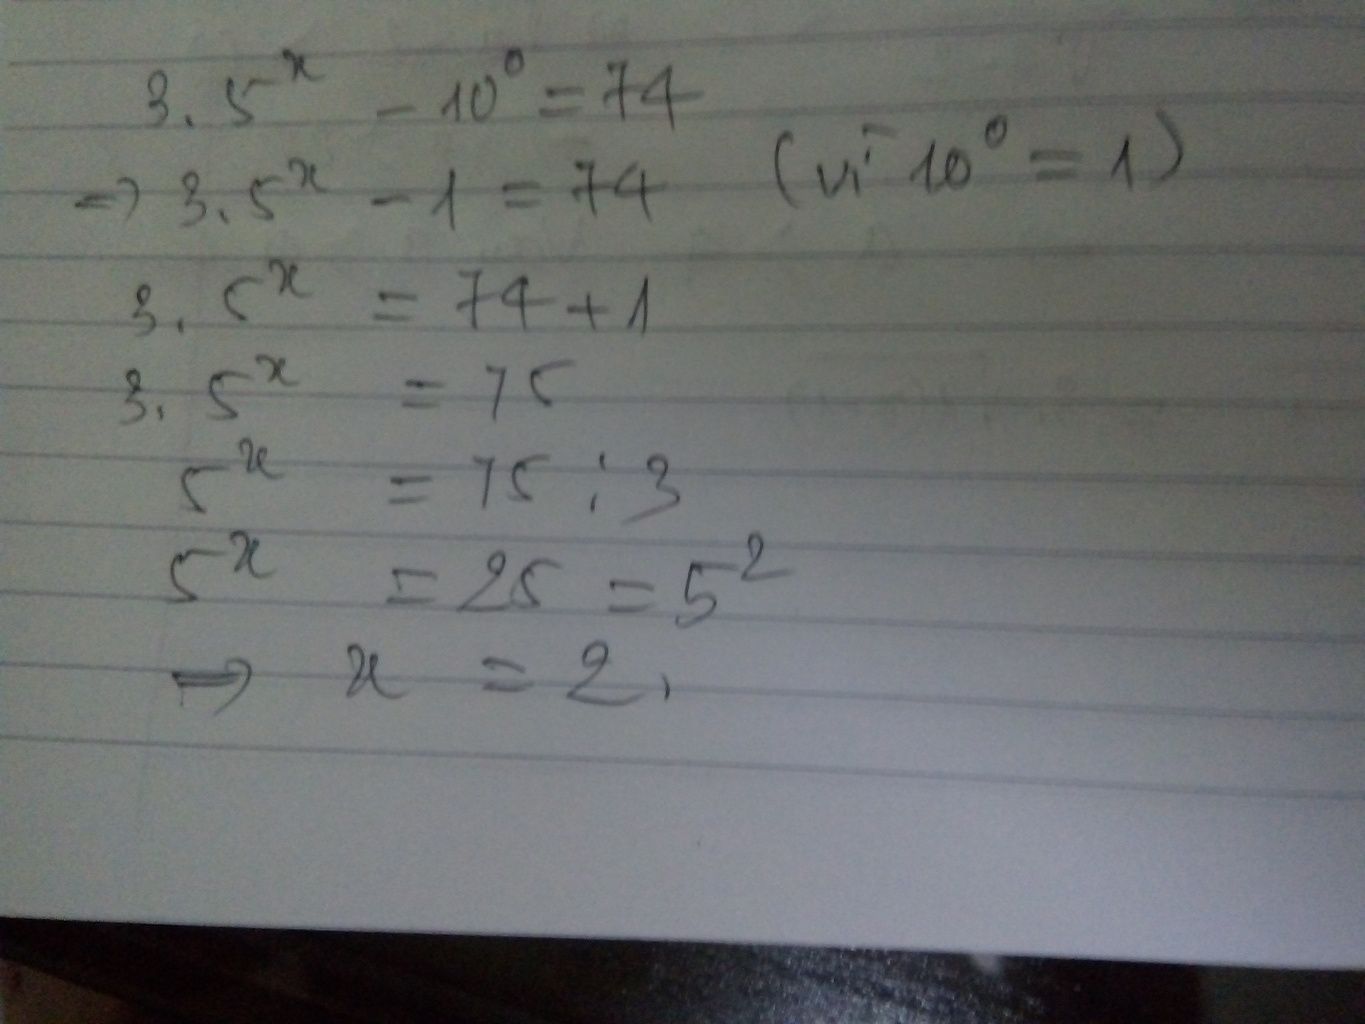 3.5ˣ - 10⁰ = 74
=> 3.5ˣ - 1 = 74 (vì 10⁰ = 1)
3.5ˣ = 74 + 1
3.5ˣ = 75
5ˣ = 75 : 3
5ˣ = 25 = 5²
=> x = 2.